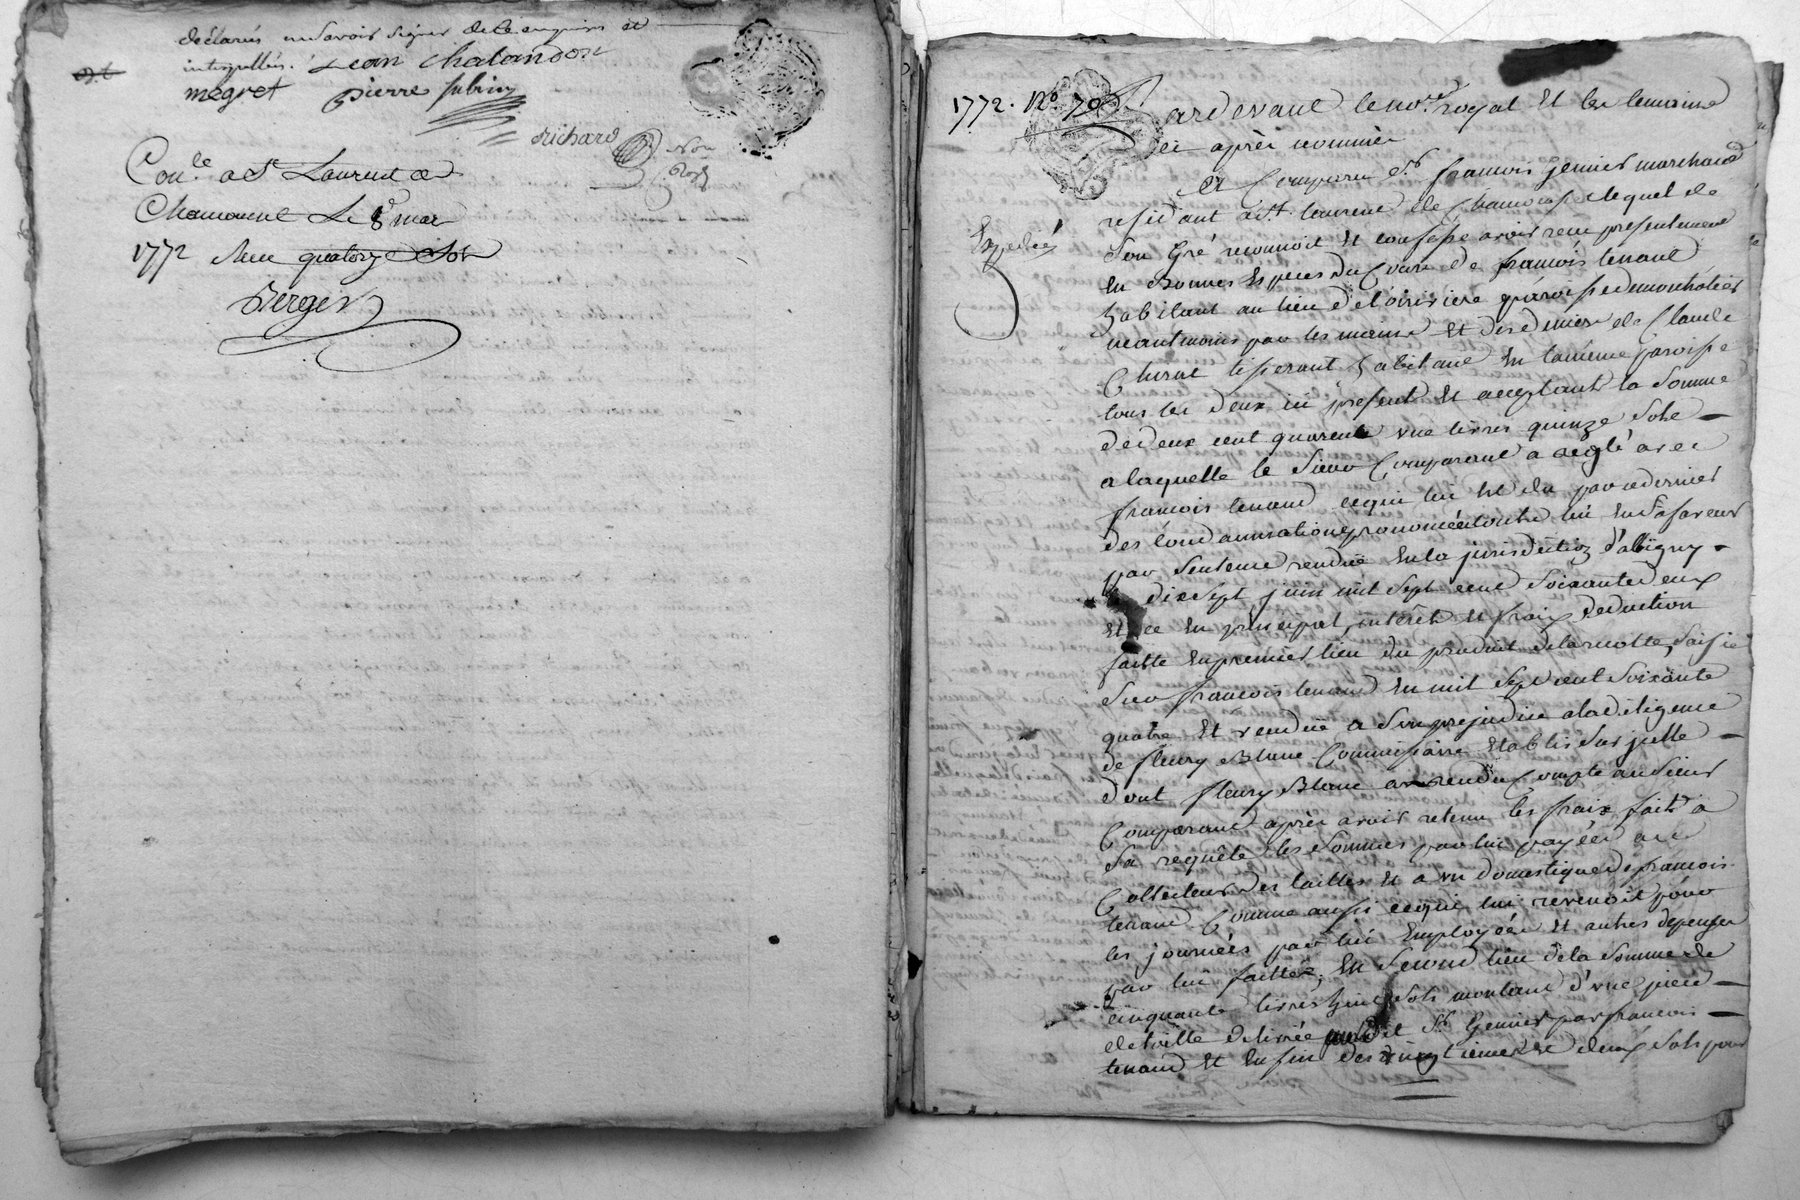 déclarés ne savoir signer de ce enquis et
interpellés. Jean Chalandon
megret pierre subrin
Richard
Not Roy
Con.lé a St Laurent de
Chamousset Le 8 mar
1772 Reçu quatorze sols
Berger
1772. No. 70
Pardevant le no.re royal et les temoins
ci après nommés
Est Comparu Sr. françois Genier marchand
residant à St. laurent de Chamousset lequel de
Son Gré reconnoit et confesse avoir reçu presentement
Expediée
En Bonnes Especes du Cours de françois tenand
habitant au lieu de paroisse de montrotier
neantmoins par les mains et des deniers de Claude
tisserant habitant En la même paroisse
tous les deux ici present et acceptants la Somme
de deux cent quarente une livres quinze Sols
a laquelle le Sieur Comparant a reglé avec
françois tenand ce qui lui est du par ce dernier
des Condamnations prononcées contre lui En Sa faveur
par Sentence rendüe En la jurisdiction d'albigny
dix sept juin mil Sept cent Soixante deux
Et ce En principal, interêts et fraix, deduction
faitte En premier lieu du produit de la recolte Saisie
Sur françois tenand En mil Sept cent Soixante
quatre Et vendüe a Son prejudice a la diligence
de fleury Blanc Commissaire Etabli Sur icelle
dont fleury Blanc a rendu Compte au Sieur
Comparant après avoir retenu les fraix faits à
Sa requête les Sommes par lui payées au
Collecteur des tailles et a un domestique de françois
tenand Comme aussi ce qui lui revenoit pour
les journées par lui Employées et autres depenses
par lui faittes; En Second lieu de la Somme de
cinquante livres Sols montant d'une piece
de toille delivrée audit Sr. Genier par françois
tenand Et En fin des vingtiemes et deux Sols pour